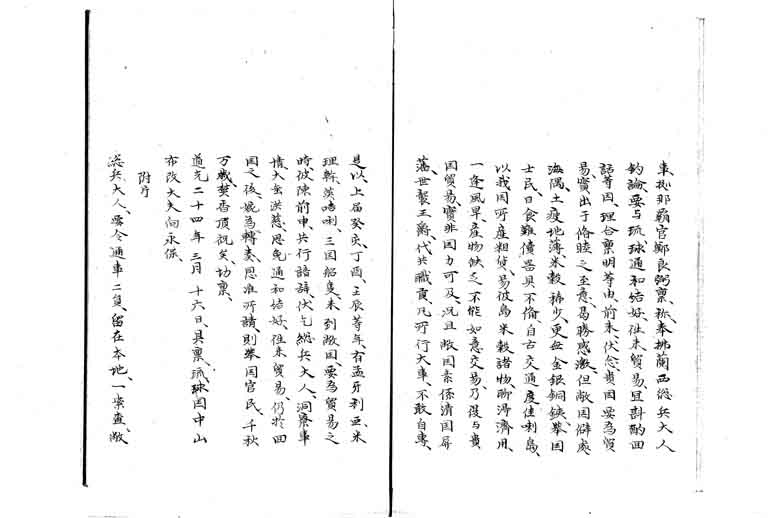 事據那霸官鄭良弼稟、称奉拂蘭西総兵大人
鈞諭、要与琉球通和結好、往来貿易、且斟酌回
話等因、理合稟明等由、前来、伏念、貴国要為貿
易、實出于脩睦之至意、曷勝感激、但敝国僻處
海隅、土瘦地薄、米穀稀少、更無金銀銅鉄、舉国
士民、日食雖僅器具不備、自古交通度佳喇島、
以我国所産粗貨、易彼島米穀諸物、聊得済用、
一逢風旱、産物缺乏、不能如意交易、乃復与貴
国貿易、實非国力可及、况且敝国素係清国屏
藩、世襲王爵、代共職貢、凡所行大事、不敢自專、
是以、上届癸亥、丁酉、壬辰等年、有孟牙利亜米
理幹、英咭唎、三国船隻、来到敝国、要為貿易之
時、彼陳前由、共行語辞、伏乞総兵大人、洞察事
情、大垂洪慈、恩免通和結好、往来貿易、仍於回
国之後、婉為轉奏、恩准所請、則舉国官民、千秋
万歳、焚香頂祝矣、切稟、
道光二十四年三月十六日、具稟、琉球国中山
布政大夫向永保
附片
総兵大人、要令通事二員、留在本地、一案査、敝